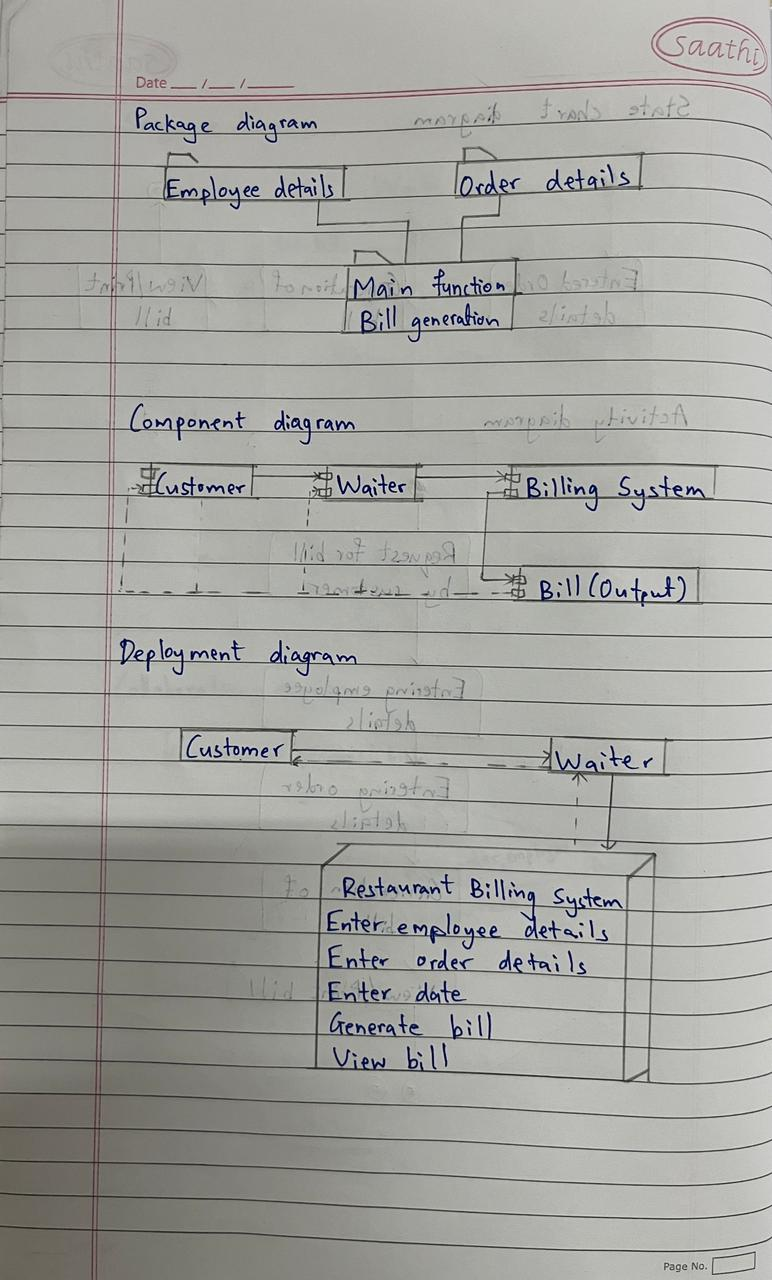 Saathi
Date __/__/____
Package diagram
Employee details
Order details
Main function
Bill generation
Component diagram
Customer
Waiter
Billing System
Bill (Output)
Deployment diagram
Customer
Waiter
Restaurant Billing System
Enter employee details
Enter order details
Enter date
Generate bill
View bill
Page No.